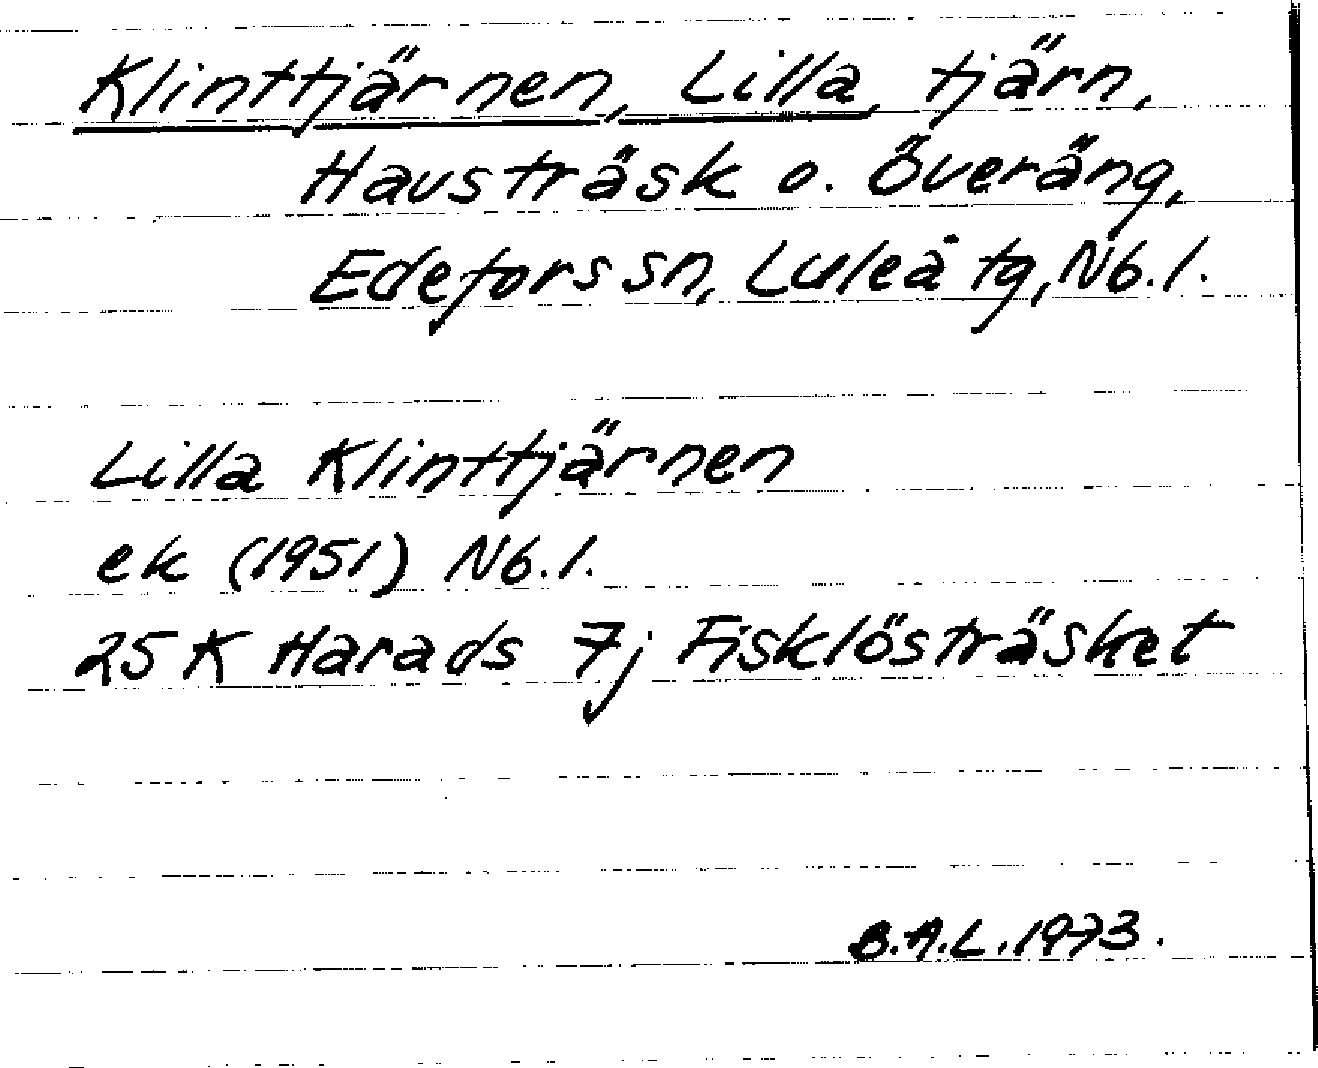 Klinttjärnen, Lilla, tjärn,
Hausträsk o. Överäng,
Edefors sn, Luleå tg, Nb. l.
Lilla Klinttjärnen
ek (1951) Nb. l.
25 K Harads 7j Fisklösträsket
B.A.L. 1973.